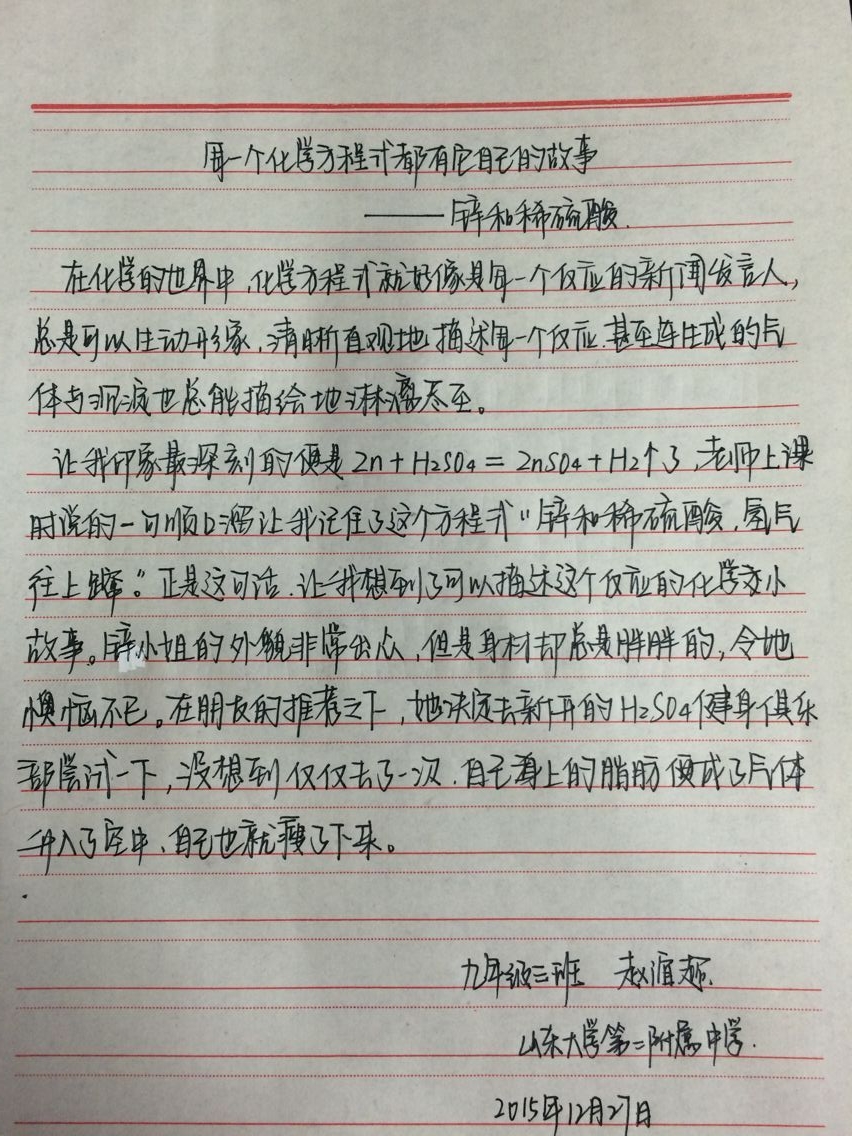 每一个化学方程式都有它自己的故事
——锌和稀硫酸.
在化学的世界中,化学方程式就好像是每一个反应的新闻发言人,
总是可以生动形象,清晰直观地描述每一个反应.甚至连生成的气
体与沉淀也总能描绘地淋漓尽至。
让我印象最深刻的便是Zn+H2SO4=ZnSO4+H2↑了,老师上课
时说的一句顺口溜让我记住了这个方程式“锌和稀硫酸,氢气
往上蹿。”正是这句话.让我想到了可以描述这个反应的化学变小
故事。锌小姐的外貌非常出众,但是身材却总是胖胖的,令她
懊恼不已。在朋友的推荐之下,她决定去新开的H2SO4健身俱乐
部尝试一下,没想到仅仅去了一次.自己身上的脂肪便成了气体
升入了空中、自己也就瘦了下来。
九年级三班 赵
山东大学第二附属中学.
2015年12月27日